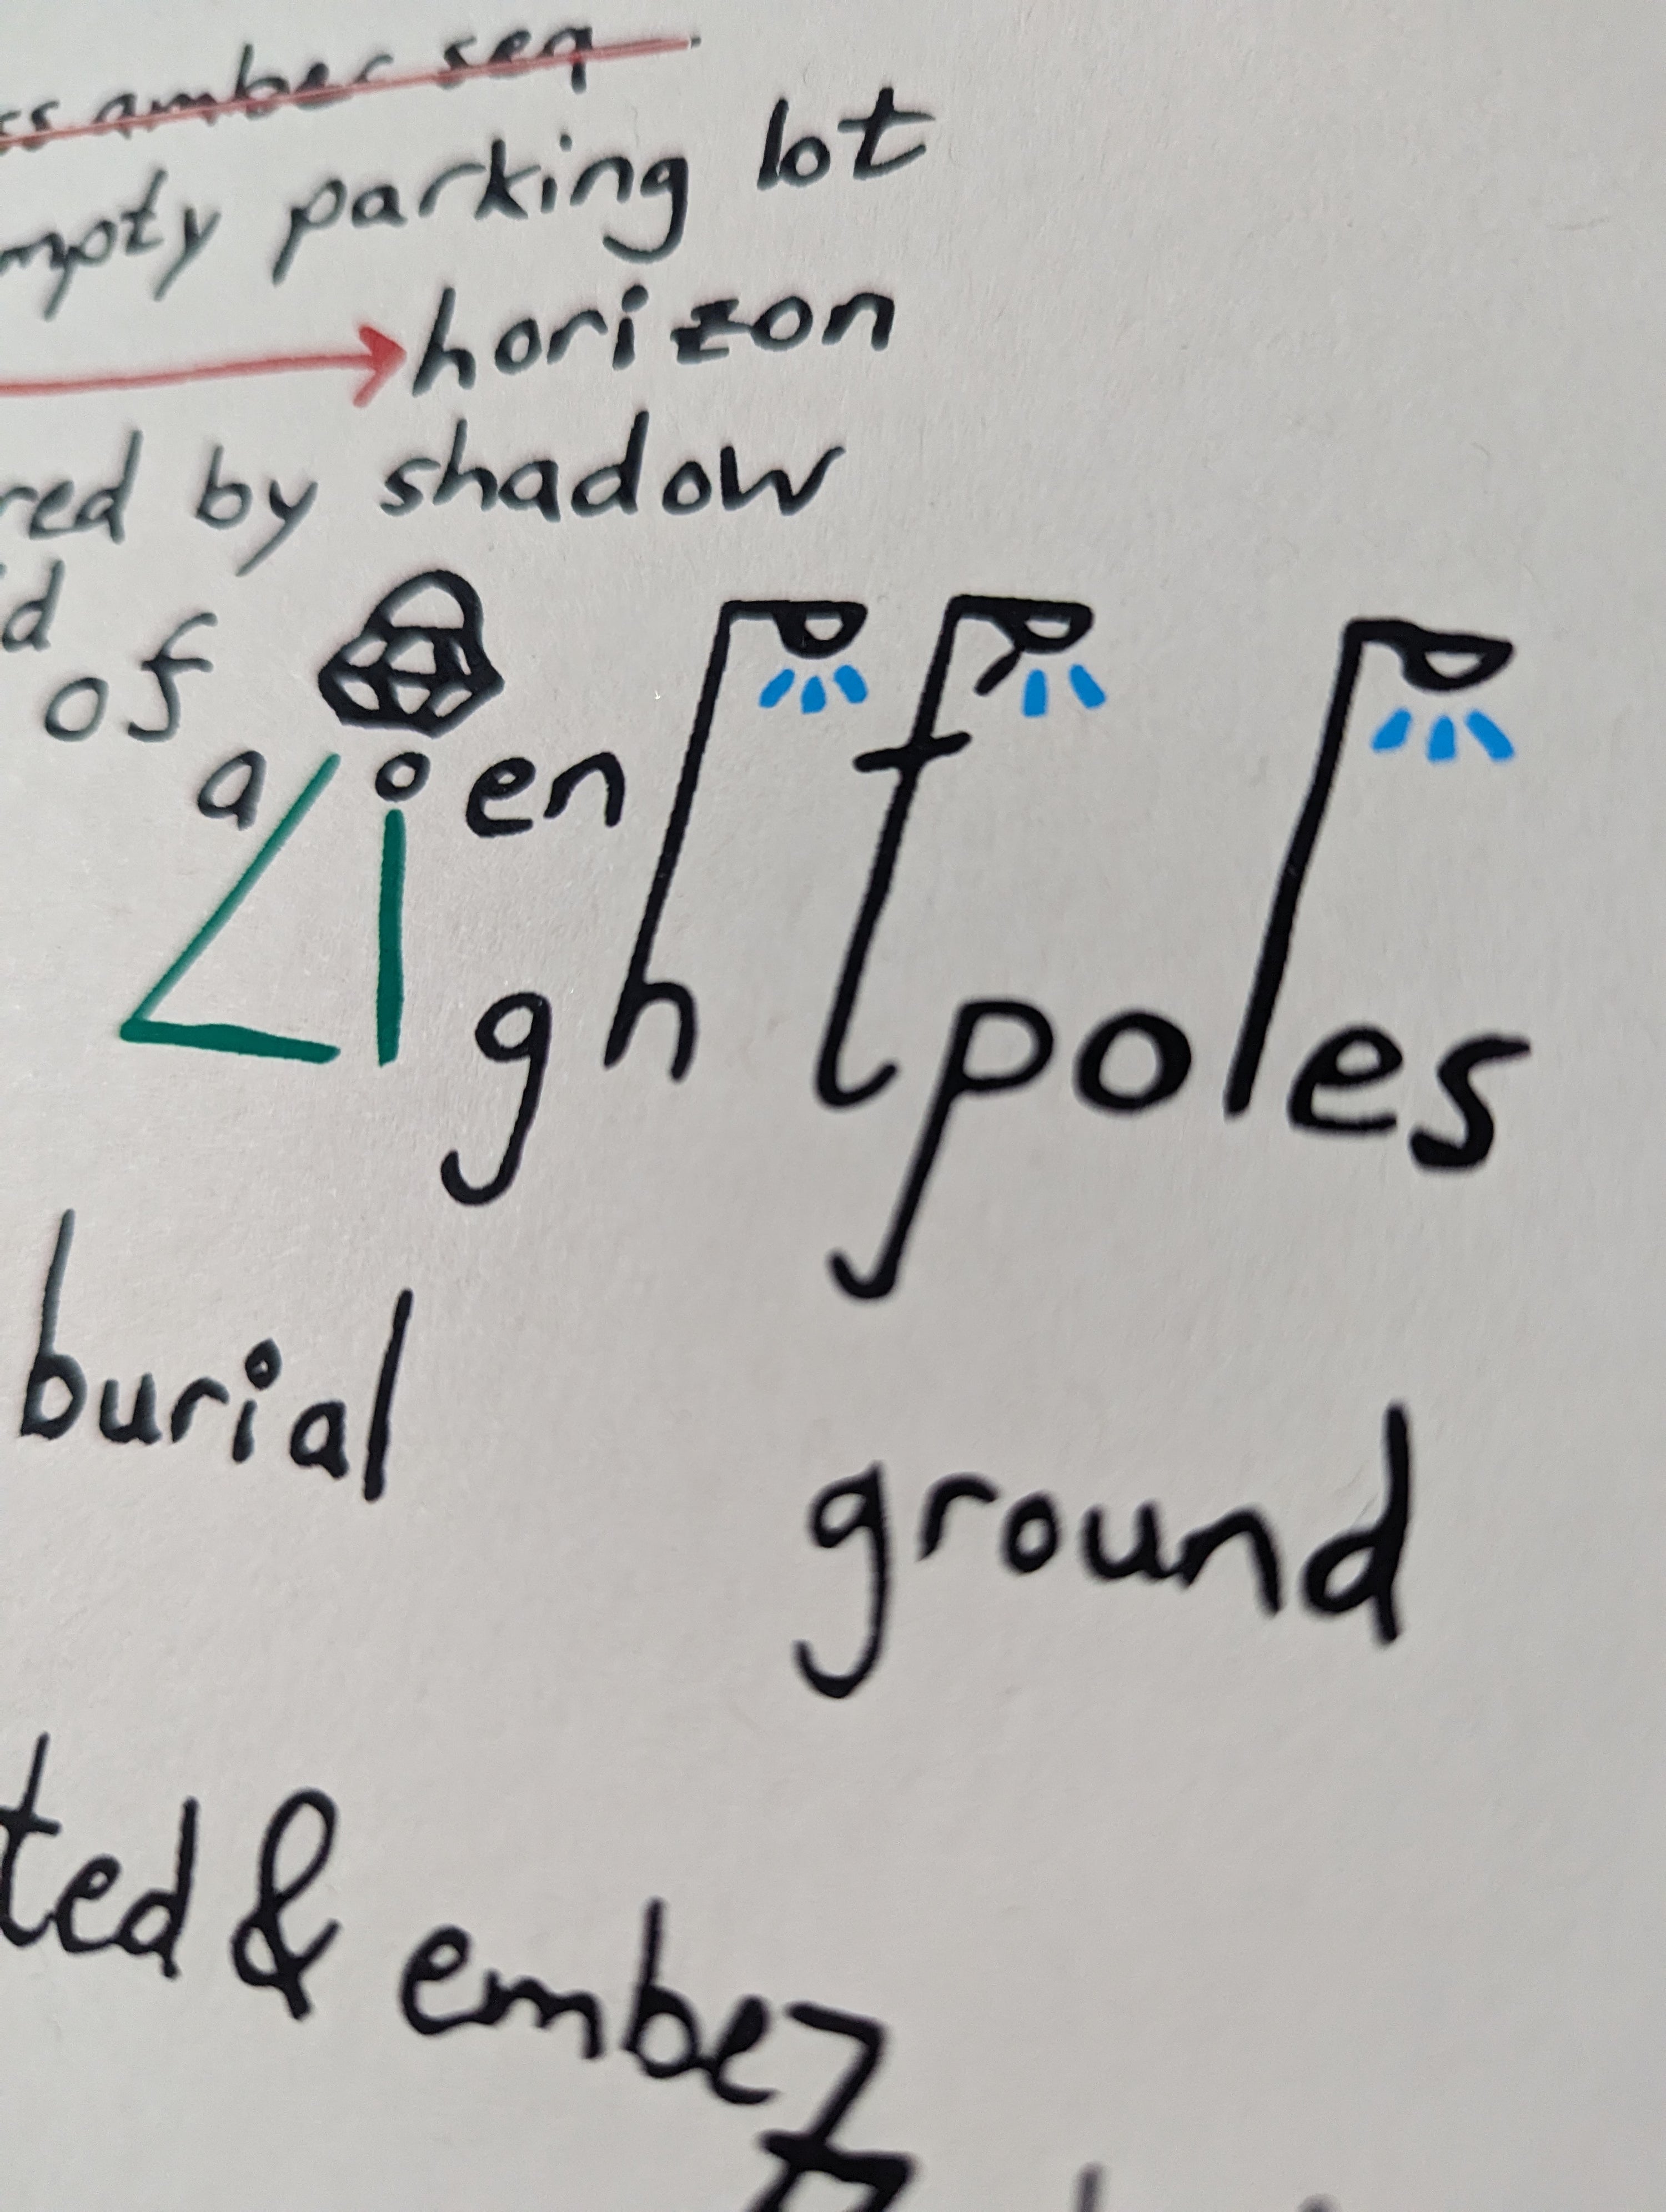 amber sea
parking lot
horizon
by shadow
of
alien
light poles
burial
ground
& embez